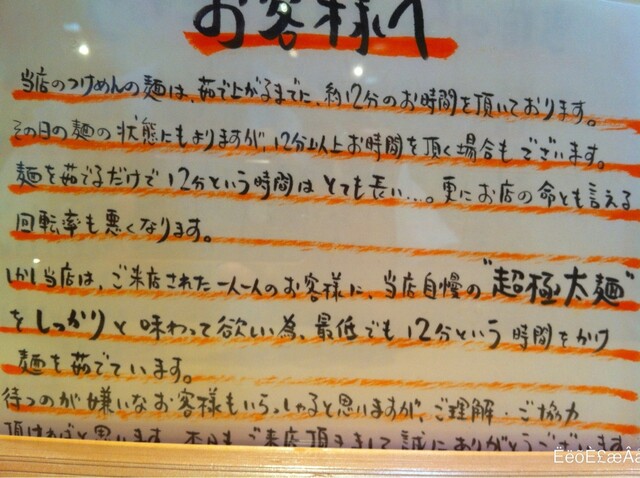 お客様へ
当店のつけめんの麺は、茹で上がるまでに、約12分のお時間を頂いております。
その日の麺の状態にもよりますが、12分以上お時間を頂く場合もございます。
麺を茹でるだけで12分という時間はとても長い…。更にお店の命とも言える
回転率も悪くなります。
しかし当店は、ご来店された一人一人のお客様に、当店自慢の"超極太麺"
をしっかりと味わって欲しい為、最低でも12分という時間をかけ
麺を茹でています。
待つのが嫌いなお客様もいらっしゃると思いますが、ご理解・ご協力
頂ければと思います。本日もご来店頂きまして誠にありがとうございます。